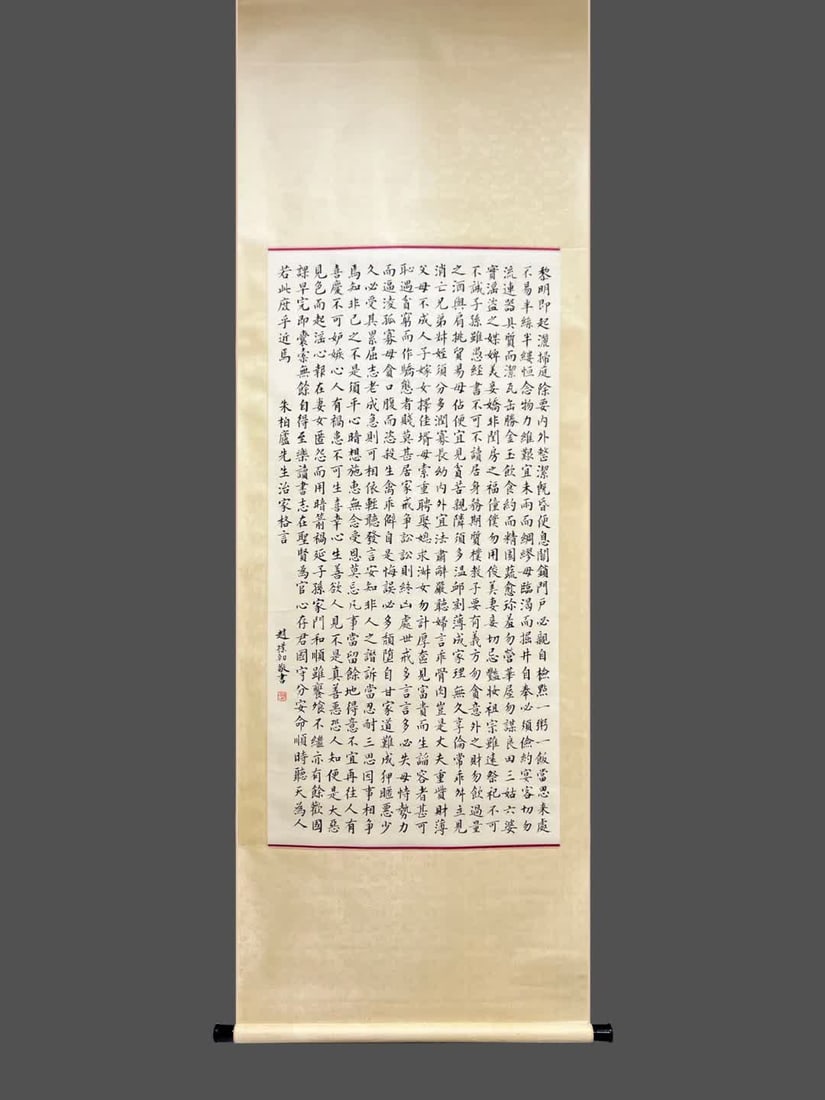 黎明即起灑掃庭除要內外整潔既昏便息關鎖門戶必親自檢點一粥一飯當思來處
不易半絲半縷恒念物力維艱宜未雨而綢繆毋臨渴而掘井自奉必須儉約宴客切勿
流連器具質而潔瓦缶勝金玉飲食約而精園蔬愈珍羞勿營華屋勿謀良田三姑六婆
實淫盜之媒婢美妾嬌非閨房之福僮僕勿用俊美妻妾切忌豔妝祖宗雖遠祭祀不可
不誠子孫雖愚經書不可不讀居身務期質樸教子要有義方勿貪意外之財勿飲過量
之酒與肩挑貿易毋佔便宜見貧苦親鄰須多溫卹刻薄成家理無久享倫常乖舛立見
消亡兄弟叔姪須分多潤寡長幼內外宜法肅辭嚴聽婦言乖骨肉豈是丈夫重貲財薄
父母不成人子嫁女擇佳壻毋索重聘娶媳求淑女勿計厚奩見富貴而生諂容者甚可
恥遇貧窮而作驕態者賤莫甚居家戒爭訟訟則終凶處世戒多言言多必失毋恃勢力
而逼淩孤寡毋貪口腹而恣殺生禽乖僻自是悔誤必多頹墮自甘家道難成狎暱惡少
久必受其累屈志老成急則可相依輕聽發言安知非人之譖訴當忍耐三思因事相爭
焉知非己之不是須平心暗想施惠無念受恩莫忘凡事當留餘地得意不宜再往人有
喜慶不可妒嫉心人有禍患不可生喜幸心生善欲人見不是真善惡恐人知便是大惡
見色而起淫心報在妻女匿怨而用暗箭禍延子孫家門和順雖饔飧不繼亦有餘歡國
課早完即囊橐無餘自得至樂讀書志在聖賢為官心存君國守分安命順時聽天為人
若此庶乎近焉 朱柏廬先生治家格言
趙樸初敬書